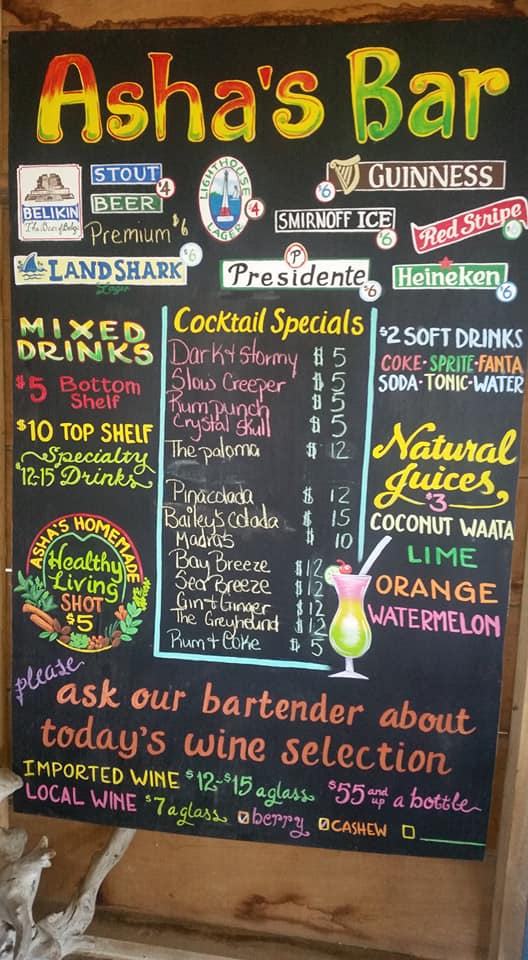 Asha's Bar
BELIKIN
The Beer of Belize
STOUT $4
BEER
Premium $6
LIGHTHOUSE
LAGER
4
$6 GUINNESS
SMIRNOFF ICE $6
Red Stripe
LANDSHARK $6
Lager
P
Presidente $6
Heineken $6
MIXED
DRINKS
$5 Bottom
Shelf
$10 TOP SHELF
Specialty
$12-15 Drinks
ASHA'S HOMEMADE
Healthy
Living
SHOT
$5
Cocktail Specials
Dark + Stormy $ 5
Slow Creeper $ 5
Rum punch $ 5
Crystal Skull $ 5
The paloma $ 12
Pinacolada $ 12
Bailey's Colada $ 15
Madras $ 10
Bay Breeze $12
Sea Breeze $12
Gin + Ginger $12
The Greyhound $12
Rum + Coke $ 5
$2 SOFT DRINKS
COKE - SPRITE - FANTA
SODA - TONIC - WATER
Natural
Juices
$3
COCONUT WAATA
LIME
ORANGE
WATERMELON
please
ask our bartender about
today's wine selection
IMPORTED WINE $12-$15 a glass $55 and up a bottle
LOCAL WINE $7 a glass berry CASHEW